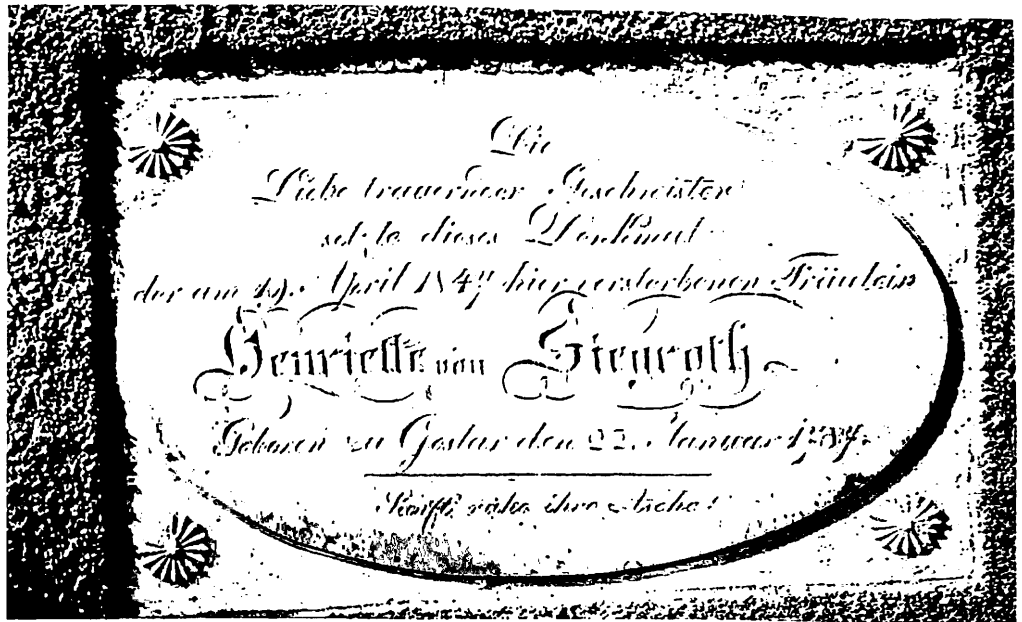 Die
Liebe trauernder Geschwister
setzte dieses Denkmal
der am 19. April 184 hier verstorbenen Fräulein
Henriette von Stegroth
Geboren zu Goslar den 22. Januar
Sanft ruhe ihre Asche!